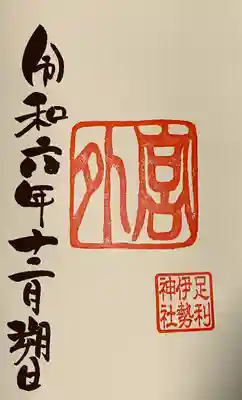 外宮
足利
伊勢
神社
令和六年十二月朔日